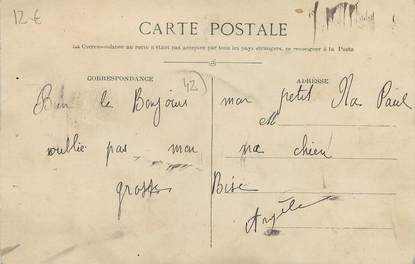 12 €
CARTE POSTALE
La Correspondance au recto n'étant pas acceptée par tous les pays étrangers, se renseigner à la Poste
CORRESPONDANCE
ADRESSE
42
Bien le Bonjour mon petit Paul
M
oublie pas mon chien
grosse Bise
Angèle